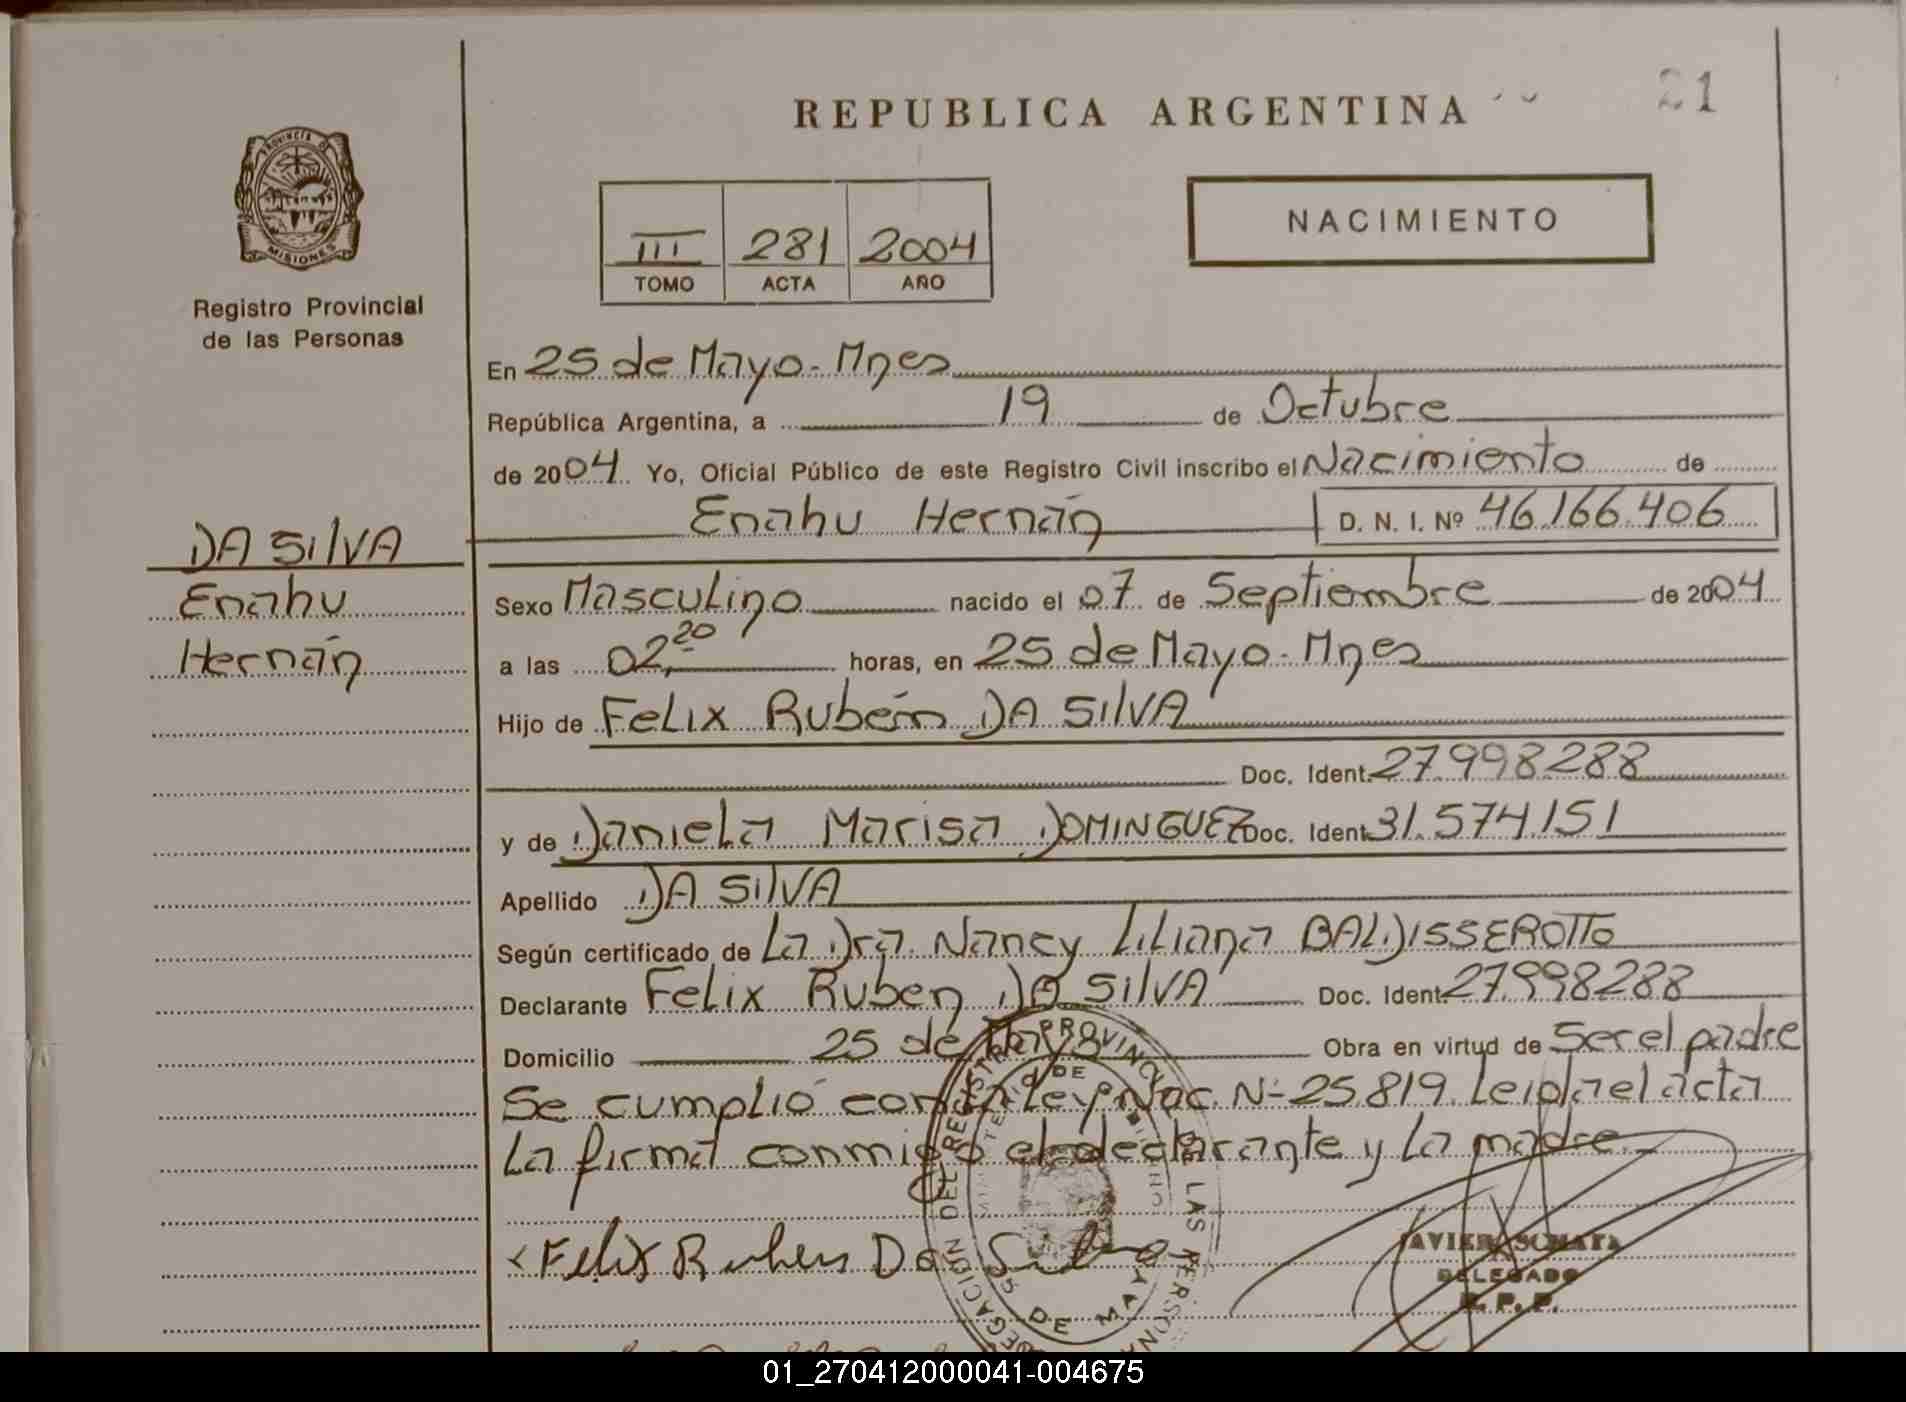 REPUBLICA ARGENTINA
21
PROVINCIA DE
MISIONES
Registro Provincial
de las Personas
III 281 2004
TOMO ACTA AÑO
NACIMIENTO
En 25 de Mayo - Mnes
República Argentina, a 19 de Octubre
de 2004 Yo, Oficial Público de este Registro Civil inscribo el Nacimiento de
Enahu Hernán D. N. I. Nº 46.166.406
DA SilVA
Enahu
Hernán
Sexo Masculino nacido el 07 de Septiembre de 2004
a las 02,20 horas, en 25 de Mayo - Mnes
Hijo de Felix Rubén DA SilVA
Doc. Ident. 27.998.288
y de Daniela Marisa DOMINGUEZ Doc. Ident. 31.574.151
Apellido DA SilVA
Según certificado de La Dra. Nancy Liliana BALDISSEROTTO
Declarante Felix Ruben DA SilVA Doc. Ident. 27.998288
Domicilio 25 de Mayo Obra en virtud de Ser el padre
Se cumplió con la Ley Nac. Nº 25.819. Leida el acta
La firma conmigo el declarante y La madre.
Felix Ruben Da Silva
DELEGACION DEL REGISTRO PROVINCIAL DE LAS PERSONAS
MINISTERIO DE GOBIERNO
25 DE MAYO
JAVIER
DELEGADO
R. P. P.
01_270412000041-004675